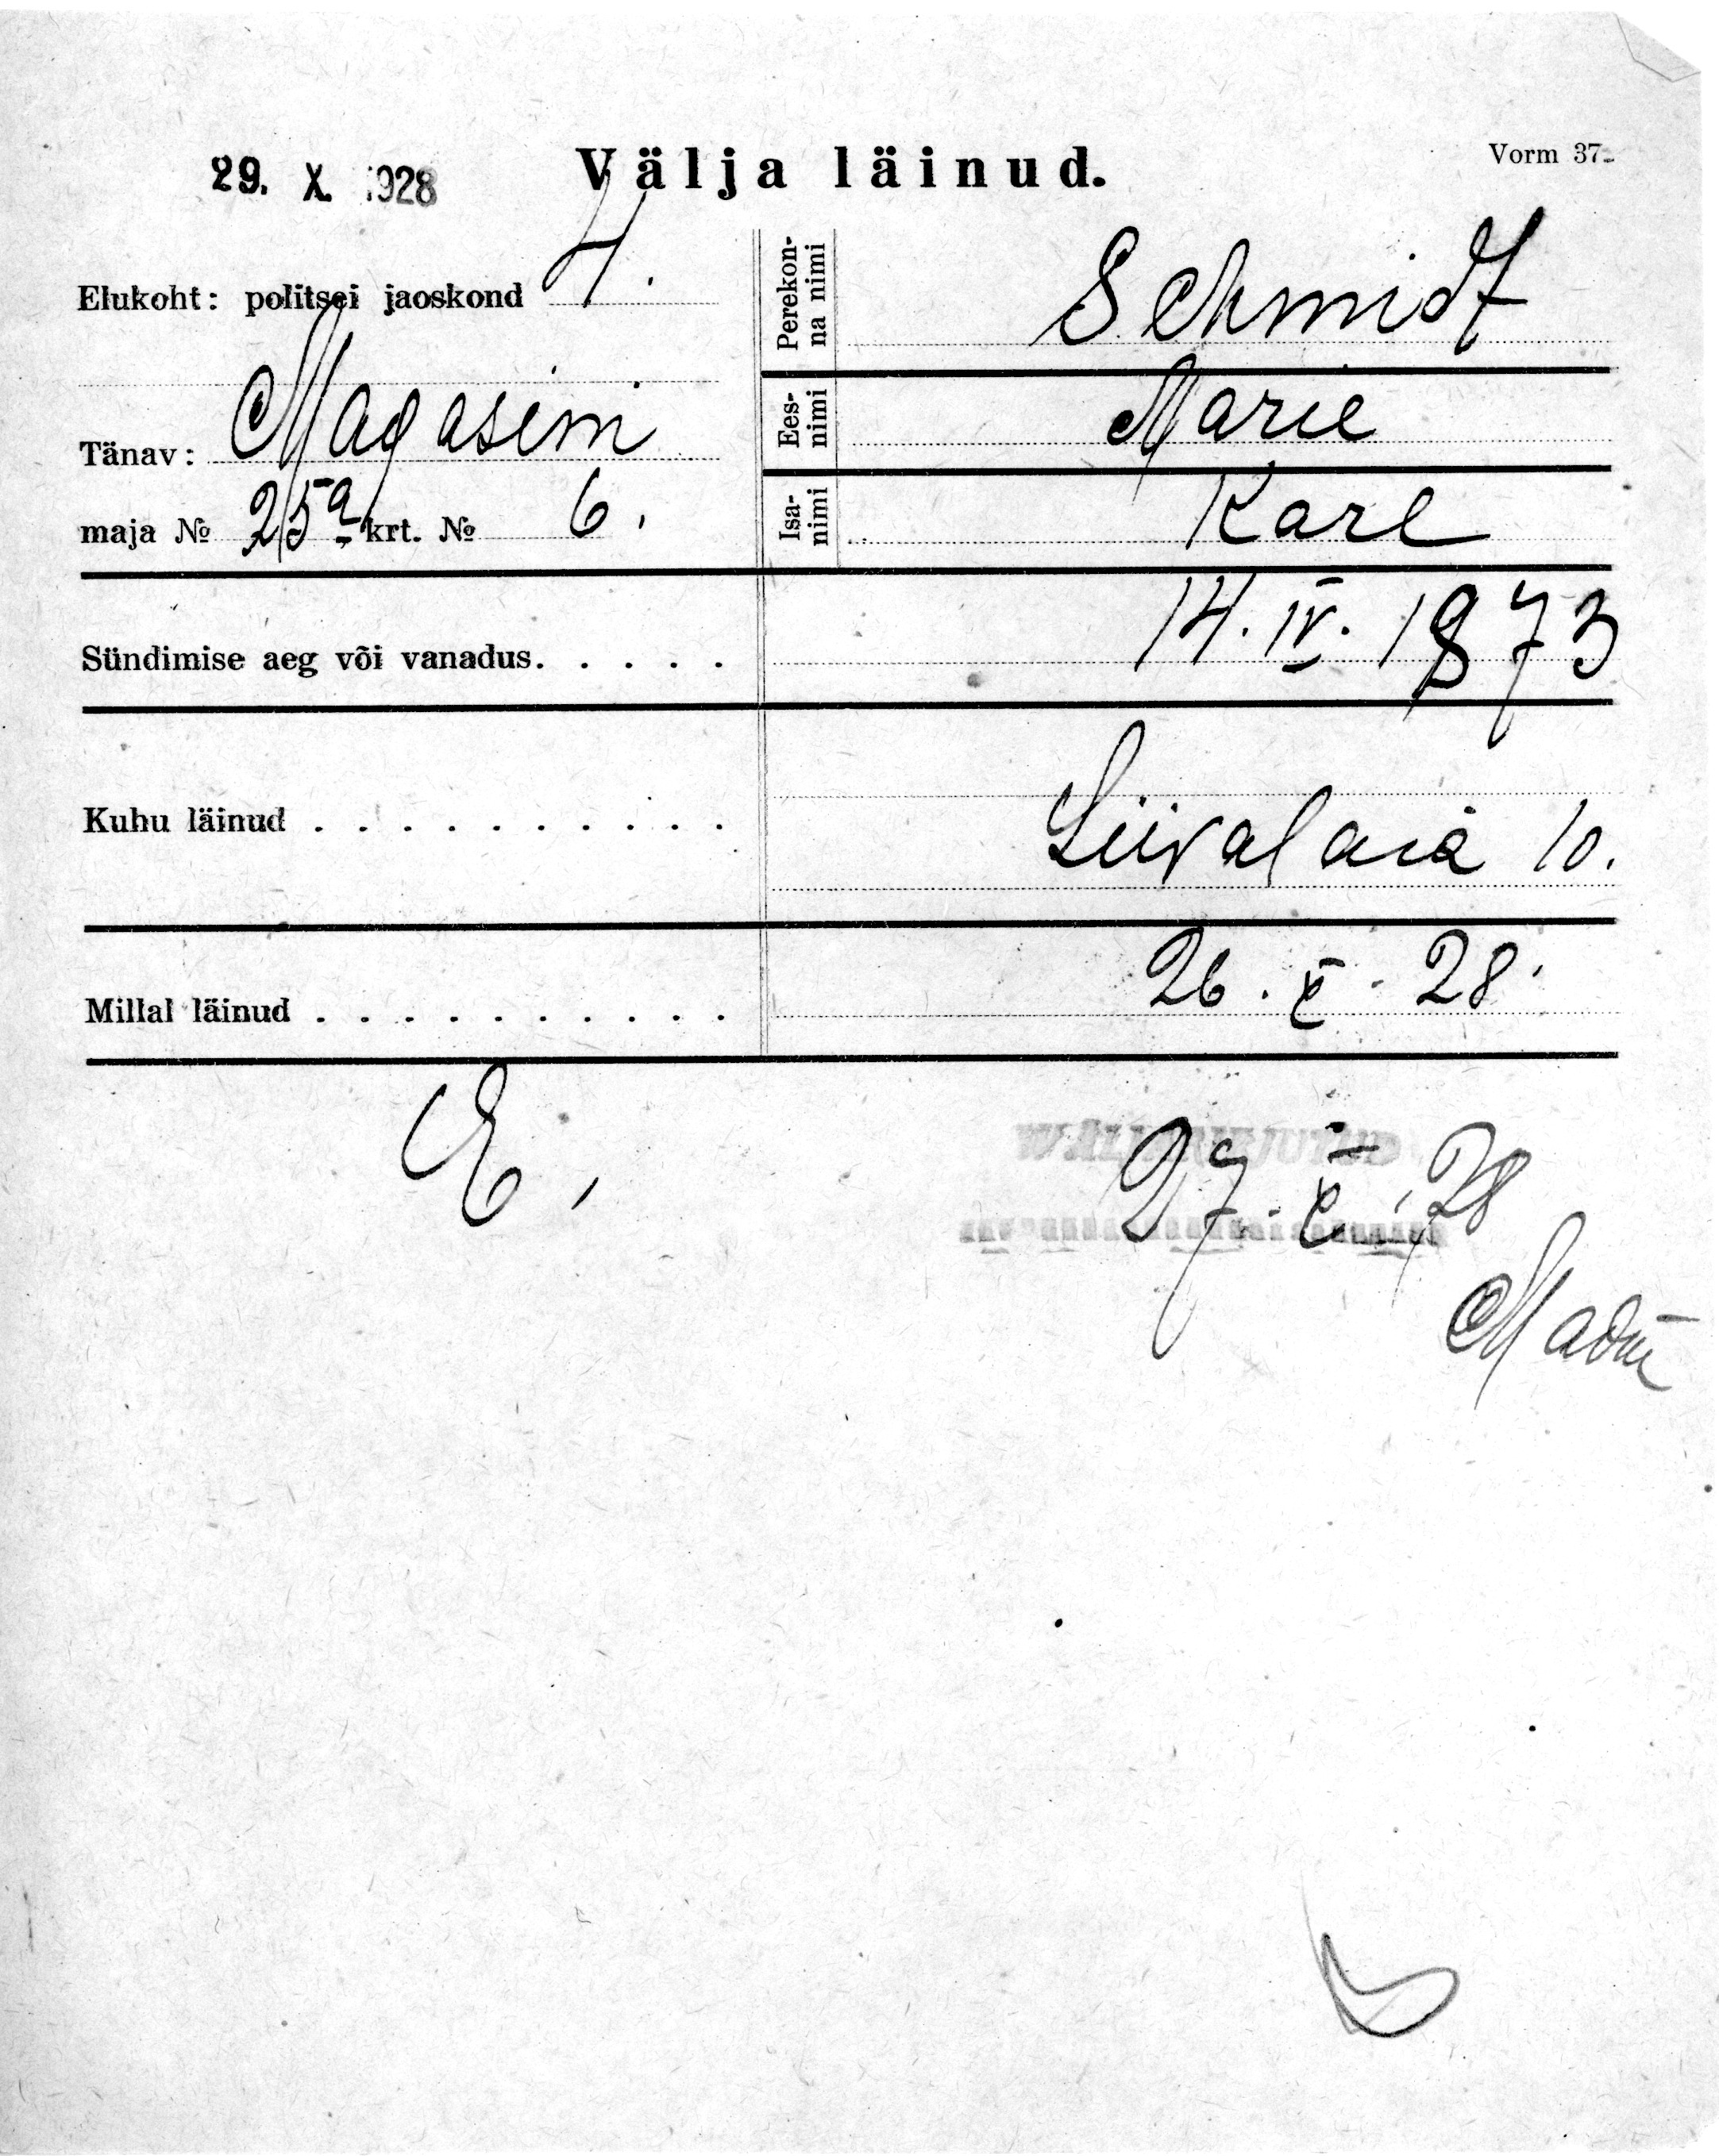 29. X. 1928
Välja läinud.
Vorm 37.
Elukoht: politsei jaoskond 4.
Tänav: Magasini
maja № 25a krt. № 6.
Perekon-
na nimi
Schmidt
Ees-
nimi
Marie
Isa-
nimi
Karl
Sündimise aeg või vanadus. . . . . 14. IV. 1873
Kuhu läinud . . . . . . . . . . Liivalaia 10.
Millal läinud . . . . . . . . . . 26. X. 28.
27. X. 28